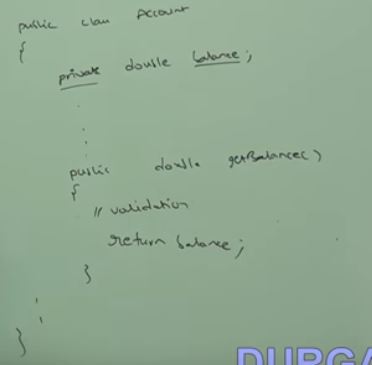 public class Account
{
private double balance;
.
.
.
public double getBalance()
{
// validation
return balance;
}
.
.
}
DURGA